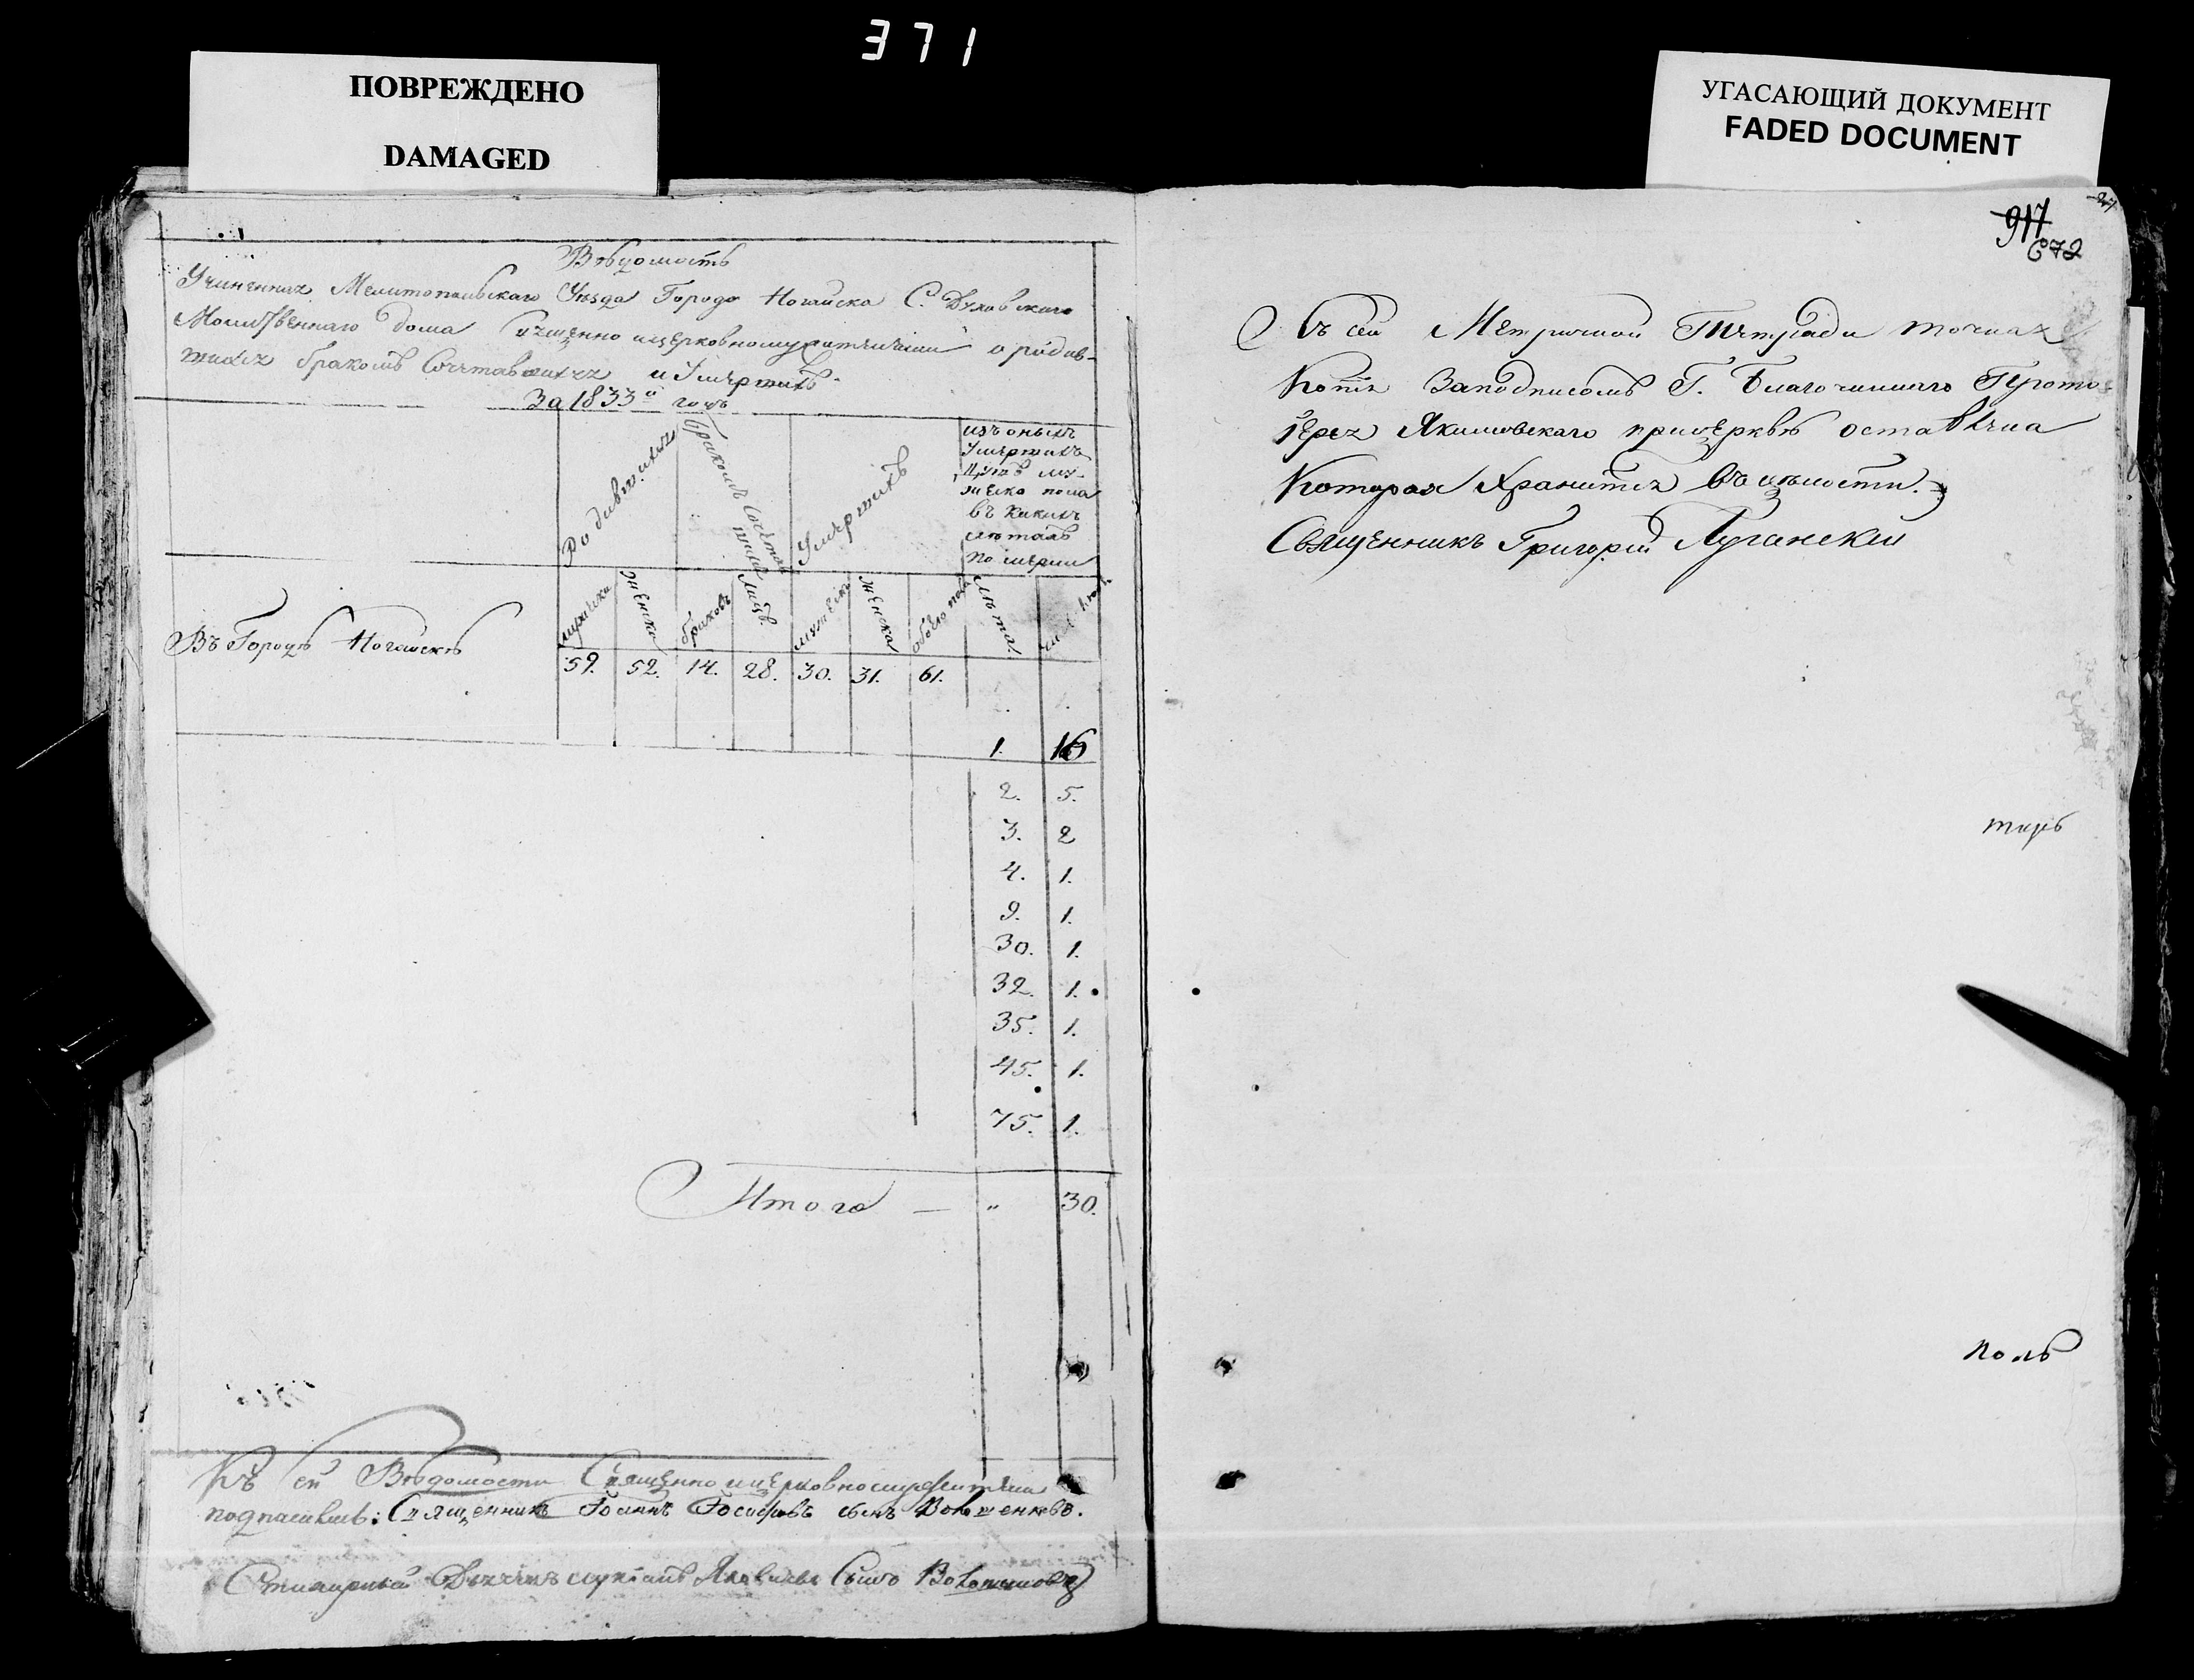 371
ПОВРЕЖДЕНО
DAMAGED
УГАСАЮЩИЙ ДОКУМЕНТ
FADED DOCUMENT
Вѣдомость
Учиненная Мелитопольскаго Уѣзда Города Ногайска С. Духовскаго
Молитвеннаго дома Священно ицерковнослужителями о родив-
шихся бракомъ Сочетавшихся и Умершихъ
За 1833й годъ
Родившихся
Бракомъ Сочетавшихся
Умершихъ
изъоныхъ
Умершихъ
Душъ му-
жеска пола
въ какихъ
лѣтахъ
Померли
мужеска
женска
браковъ
лицъ
мужеска
женска
обоего пола
лѣта
Въ Городѣ Ногайскѣ
59. 52. 14. 28. 30. 31. 61.
1. 16
2. 5.
3. 2
4. 1.
9. 1.
30. 1.
32. 1.
35. 1.
45. 1.
75. 1.
Итого — „ 30.
Къ сей Вѣдомости Священно ицерковнослужители
подписались: Священникъ Іоаннъ Іосифовъ сынъ
Сынъ
917
672
Съ сей Метричной Тетради точная
Копія Заподписомъ Г. Благочиннаго Прото
іерея Якимовскаго прицерквѣ оставлена
Которая Хранится въ цѣлости.
Священникъ Григорій Луганскій
тирь
поль